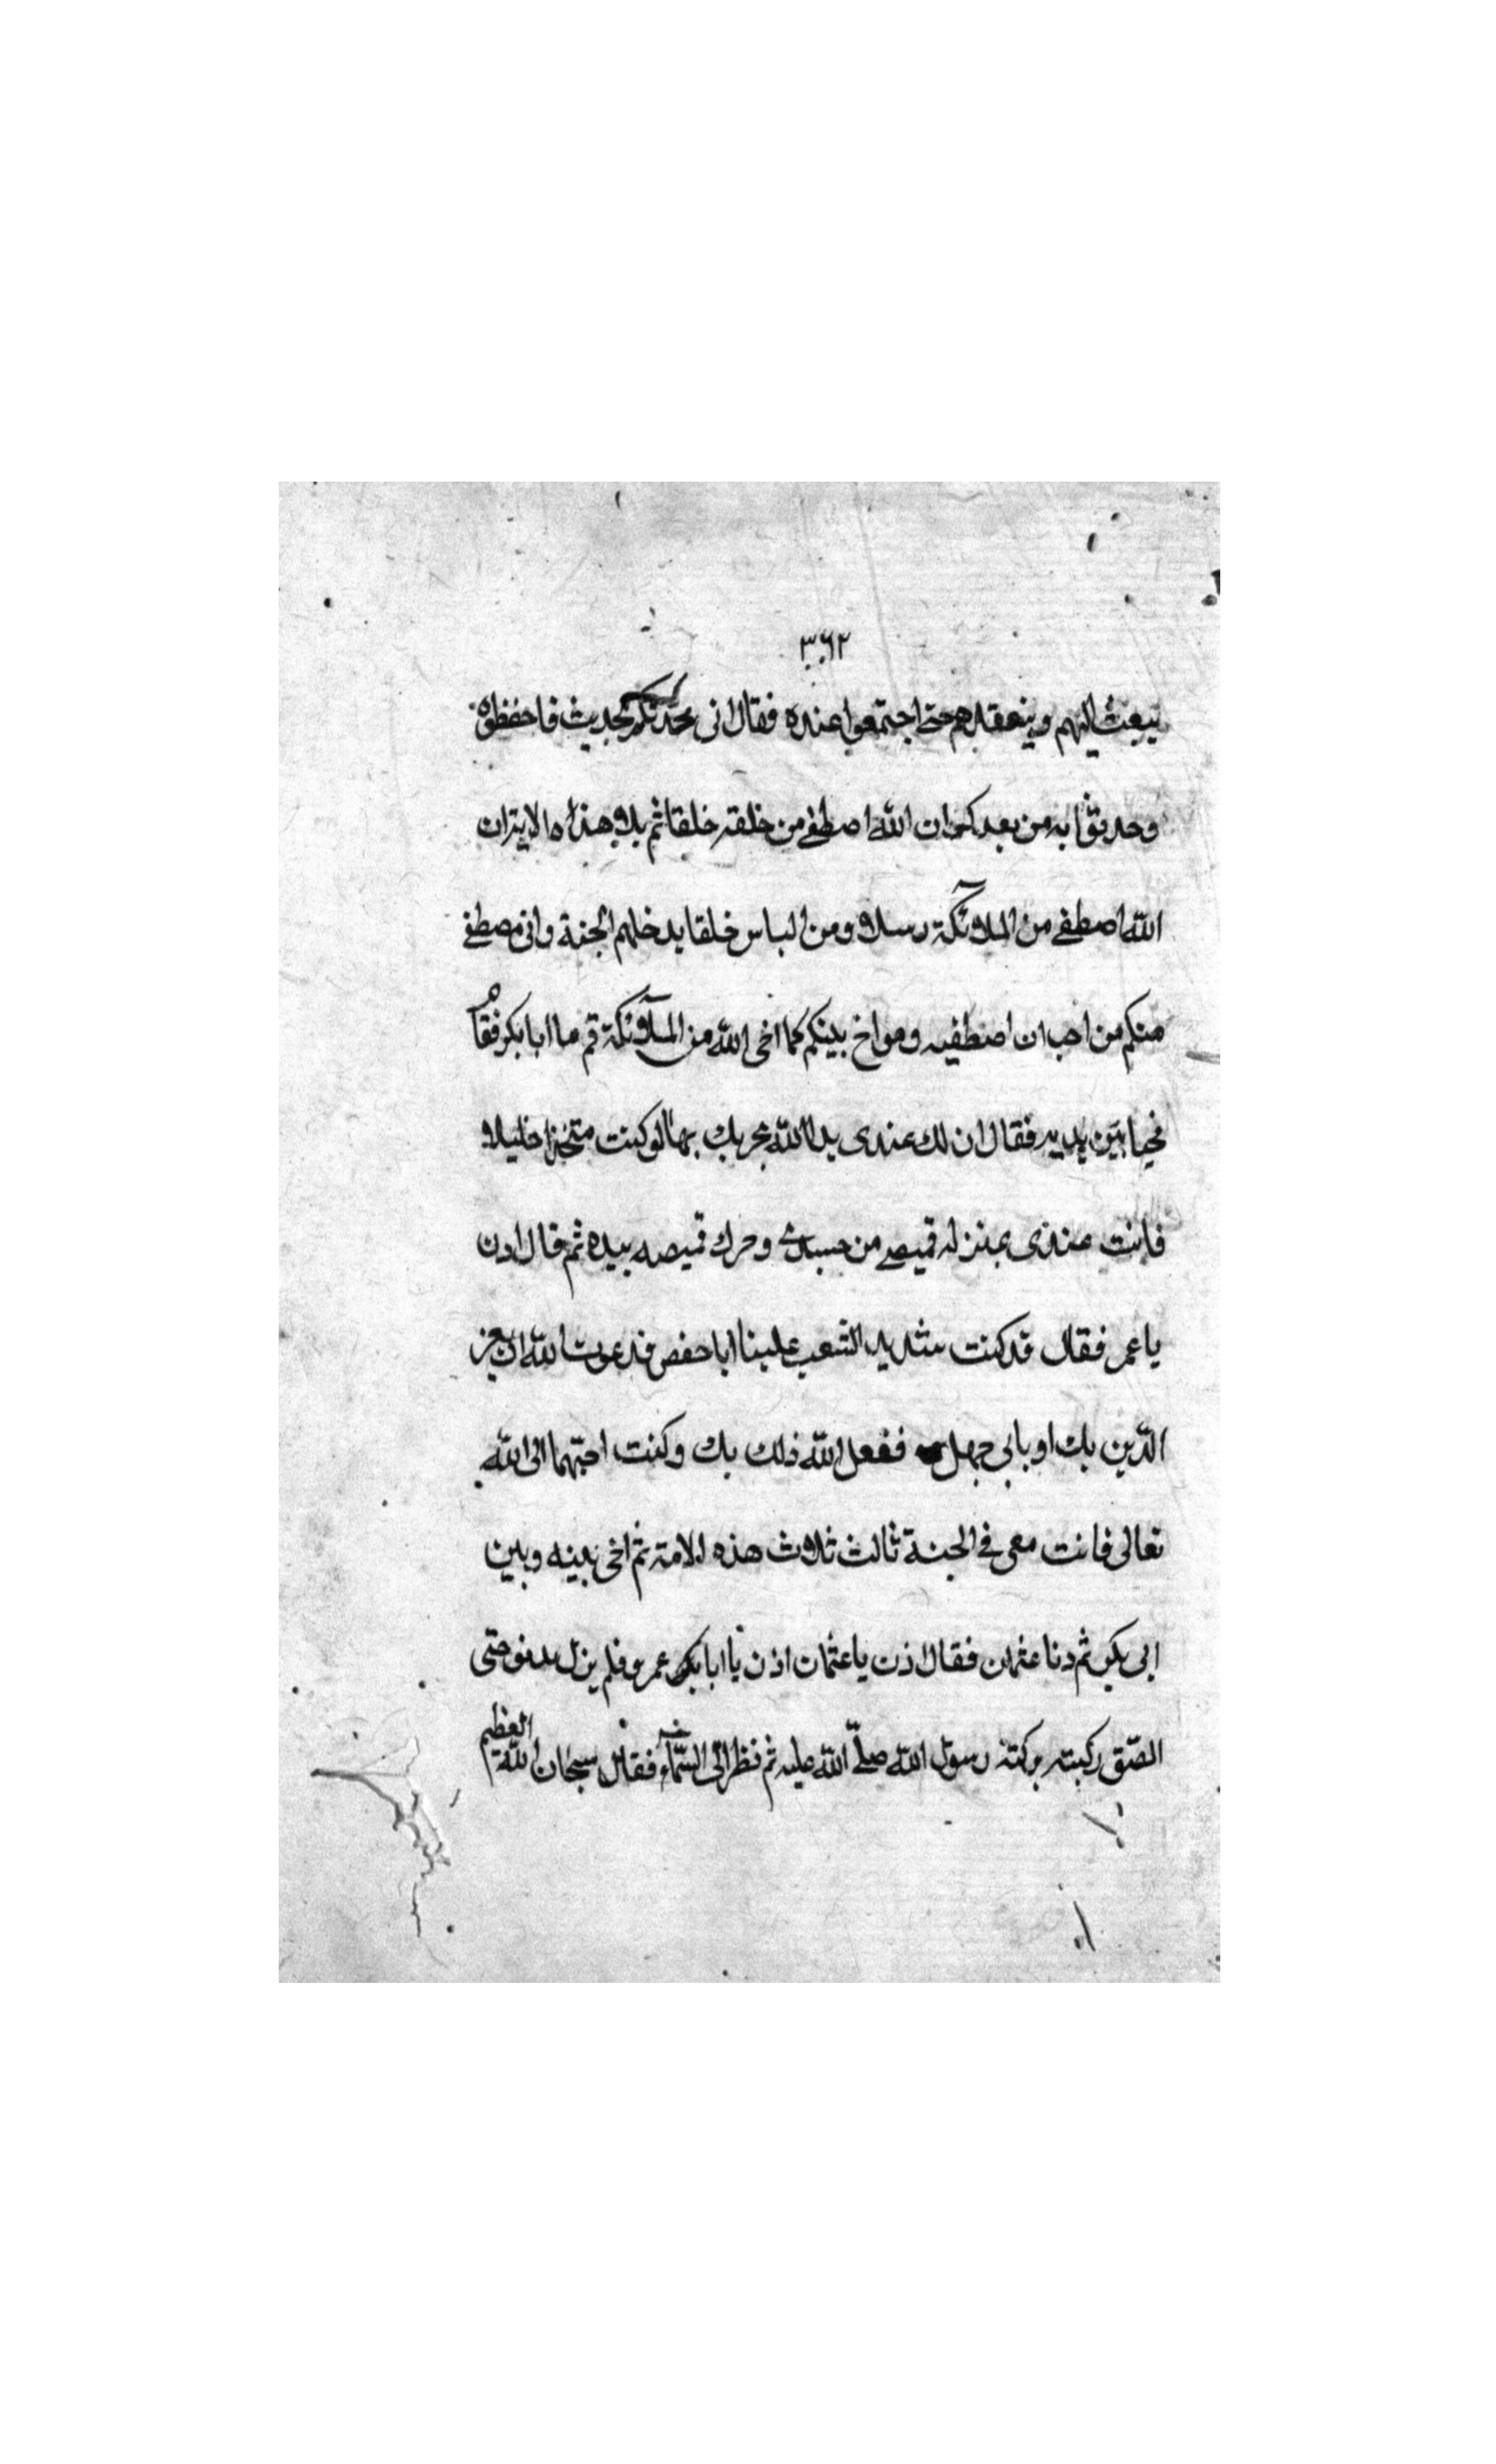 ٣٦٢
يبعث اليهم ويتفقدهم حتى اجتمعوا عنده فقال انى محدثكم بحديث فاحفظوه
وحدثوا به من بعدكم ان الله اصطفى من خلقه خلقا ثم تلا هذه الاية ان
الله اصطفى من الملائكة رسلا ومن الناس خلقا يدخلهم الجنة وانى مصطفى
منكم من احب ان اصطفيه ومواخ بينكم كما اخى الله من الملآئكة قم ما ابا بكر فقام
بين يديه فقال ان لك عندى يدا الله يجزيك بها لو كنت متخذا خليلا
فانت عندى بمنزله قميصى من جسدى وحرك قميصه بيده ثم قال ادن
يا عمر فقال قد كنت شديد الشعب علينا ابا حفص فدعوت الله ان يعز
الدين بك او بابى جهل ففعل الله ذلك بك وكنت احبهما الى الله
تعالى فانت معى فى الجنة ثالث ثلاث هذه الامة ثم اخى بينه وبين
ابى بكر ثم دنا عثمان فقال اذن يا عثمان اذن يا ابا عمرو فلم يزل يدنو حتى
الصق ركبته بركبة رسول الله صلى الله عليه ثم نظر الى السمآء فقال سبحان الله العظيم